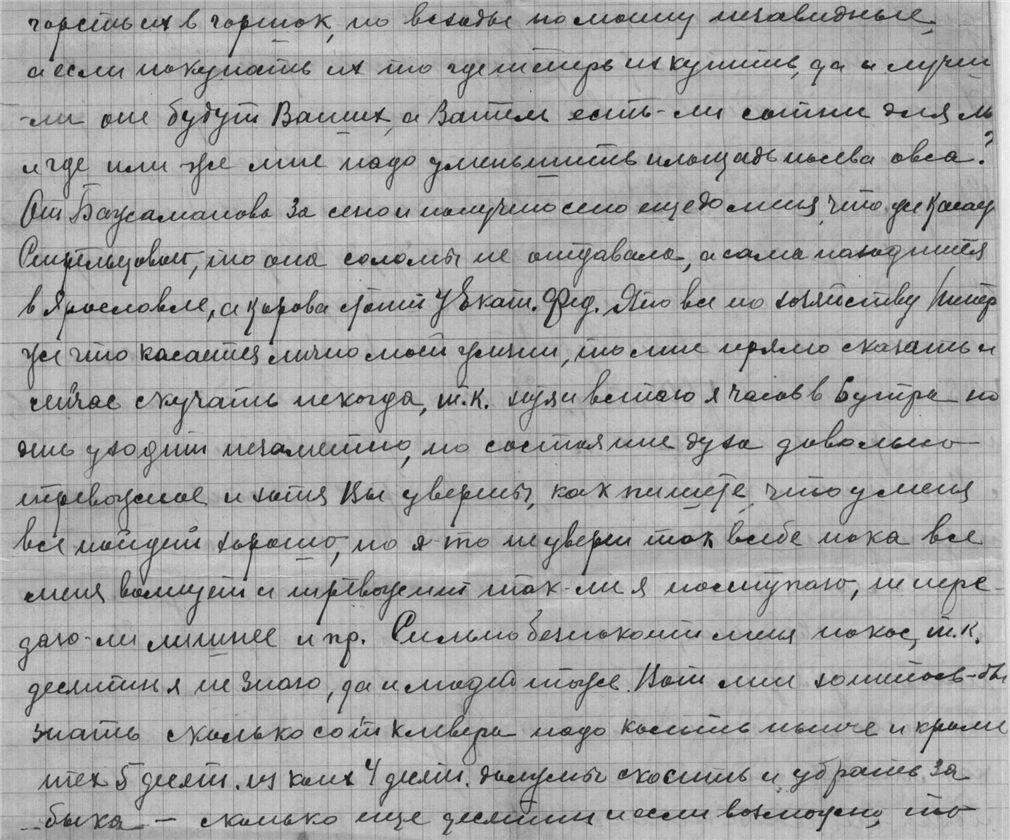 горсть их в горшок, но всходы по моему незавидные,
а если покупать их то где теперь их купить, да и лучш
-ли они будут Ваших, а Затем есть-ли сотни для
и где или же мне надо уменьшить площадь посева овса?
От Бахсаманова за сено и получено сено еще до меня, что же касает
Стрельцовой, то она соломы не отдавала, а сама находится
в Ярославле, а корова стоит у Екат. Фед. Это все по хозяйству
же что касается лично моей жизни, то мне прямо сказать и
сейчас скучать некогда, т.к. встаю я часов в 6 утра но
день уходит незаметно, но состояние духа довольно
тревожное и хотя Вы уверены, как пишете, что у меня
все пойдет хорошо, но я-то не уверен так в себе пока все
меня волнует и тревожит так-ли я поступаю, не пере-
даю-ли лишнее и пр. Сильно безпокоит меня покос, т.к.
десятин я не знаю, да и людей тоже. Вот мне хотелось-бы
знать сколько сот клевера надо косить нынче и кроме
тех 5 десят. из коих 4 десят. должны скосить и убрать за
быка – сколько еще десятин и если возможно, то